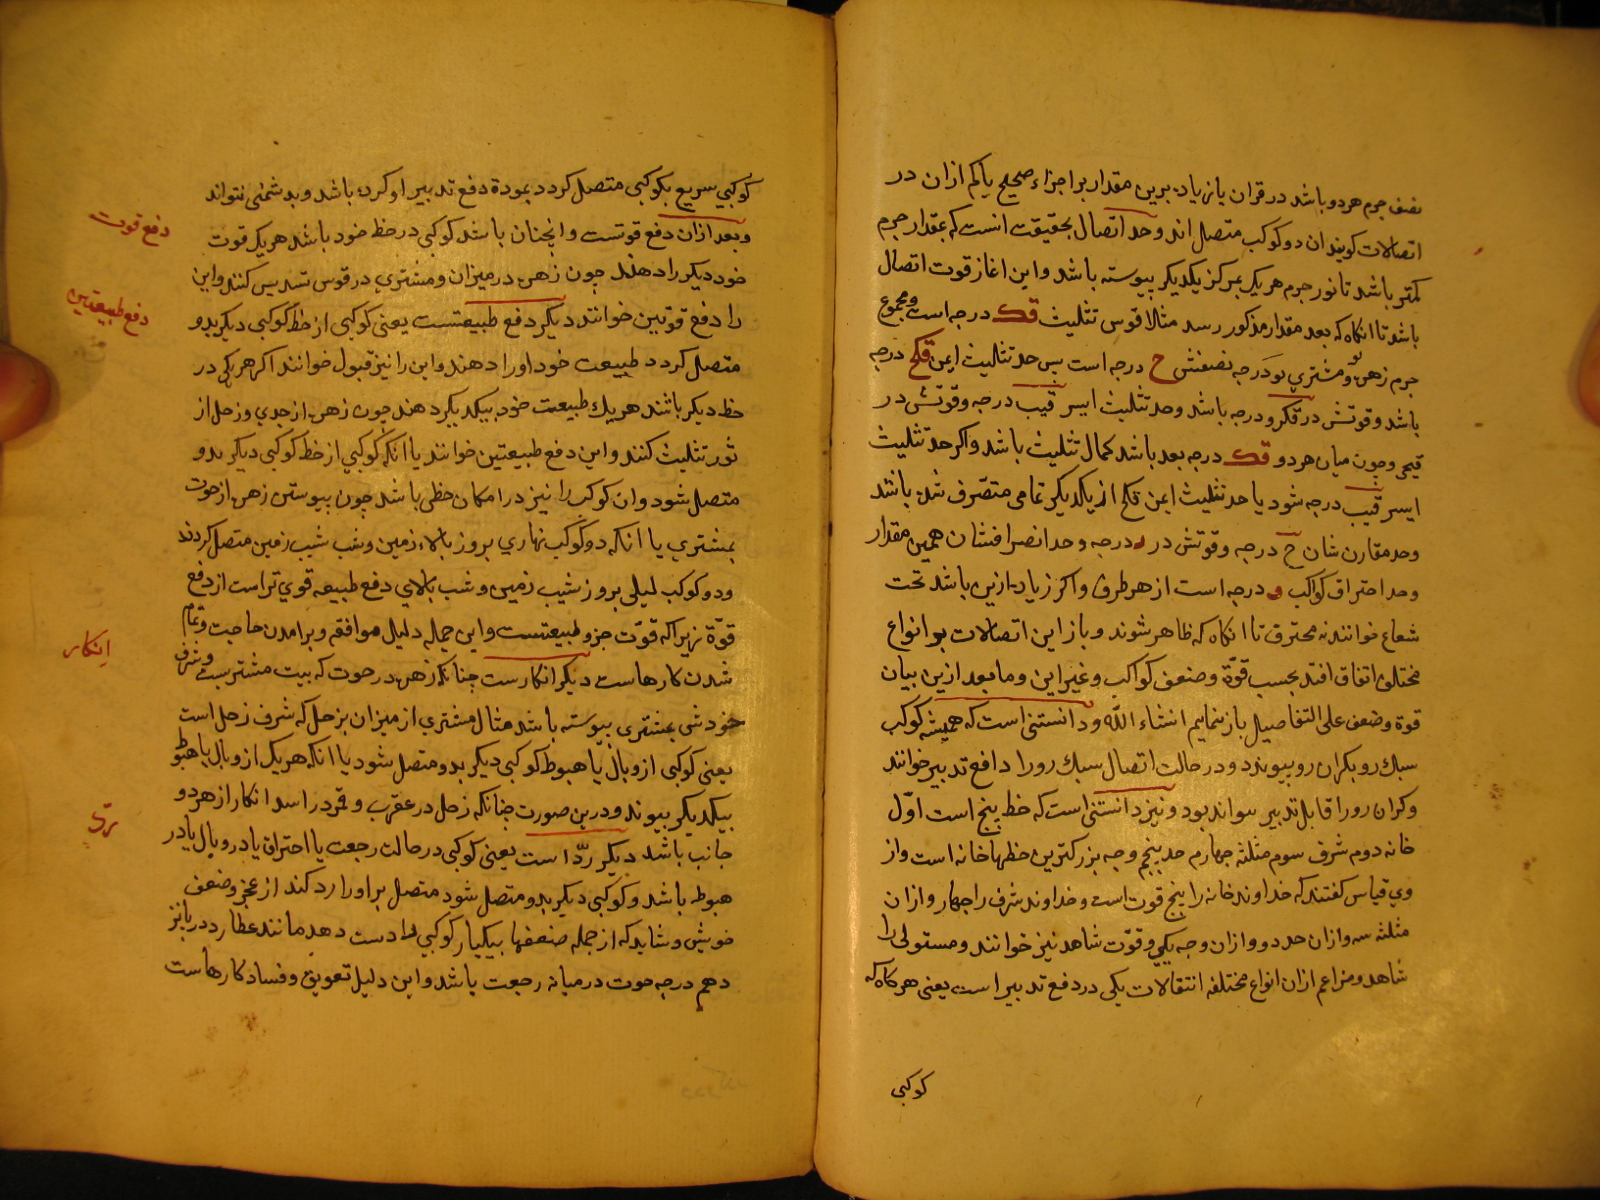 نصف جرم هر دو باشد در قران یا زیاده برین مقدار بر اجزاء صحیح یا کم ازان در
اتصالات کویند ان دو کوکب متصل اند وحد اتصال بحقیقت انست که بمقدار جرم
کمتر باشد تا نور جرم هر یک بمرکز یکدیکر پیوسته باشد واین اغاز قوت اتصال
باشد تا انکاه که بعد مقدار مذکور رسد مثلا قوس تثلیث قک درجه است ومجموع
جرم زهره ومشتری درجه نصفش ح درجه است پس حد تثلیث ایمن قکح درجه
باشد وقوتش در قکر ودرجه باشد وحد تثلیث ایسر قیب درجه وقوتش در
قیح وچون میان هر دو قک درجه بعد باشد کمال تثلیث باشد واکر حد تثلیث
ایسر قیب درجه شود یا حد تثلیث ایمن قکح از یکدیکر تمامی متصرف شده باشند
وحد مقارن شان ح درجه وقوتش در درجه وحد انصرافشان همین مقدار
وحد احتراق کواکب و درجه است از هر طرف واکر زیاده ازین باشد تحت
شعاع خوانند نه محترق تا انکاه که ظاهر شوند وباز این اتصالات بر انواع
مختلف اتفاق افتد بحسب قوّة وضعف کواکب وغیر این وما بعد ازین بیان
قوة وضعف علی التفاصیل باز نماییم انشاء الله ودانستنی است که همیشه کوکب
سبک رو بکران رو پیوندد ودر حالت اتصال سبک رو را دافع تدبیر خوانند
وکران رو را قابل تدبیر بود ونیز دانستنی است که حظ پنج است اوّل
خانه دوم شرف سوم مثلثه چهارم حد پنجم وجه بزرکترین حظها خانه است واز
وی قیاس کفتند که خداوند خانه را پنج قوت است وخداوند شرف را چهار وازان
مثلثه سه وازان حد دو وازان وجه یکی وقوّت شاهد نیز خوانند ومستولی را
شاهد ومزاعم ازان انواع مختلفه انتقالات یکی در دفع تدبیر است یعنی هر کاه که
کوکبی
کوکبی سریع بکوکبی متصل کردد بمودة دفع تدبیر او کرده باشد وبدشمنی نتواند
وبعد ازان دفع قوتست وانچنان باشد کوکبی در حظ خود باشد هر یک قوت
خود دیکر را دهند چون زهره در میزان ومشتری در قوس تسدیس کنند واین
را دفع قوتین خوانند دیکر دفع طبیعتست یعنی کوکبی از حظ کوکبی دیکر بدو
متصل کردد طبیعت خود اورا دهند واین را نیز قبول خوانند اکر هر یکی در
حظ دیکر باشند هر یک طبیعت خود بیکدیکر دهند چون زهره از جدی وزحل از
ثور تثلیث کنند واین دفع طبیعتین خوانند یا انکه کوکبی از حظ کوکبی دیکر بدو
متصل شود وان کوکب را نیز در امکان حظی باشد چون پیوستن زهره از حوت
بمشتری یا انکه دو کوکب نهاری بروز بالاء زمین وشب شیب زمین متصل کردند
ودو کوکب لیلی بروز شیب زمین وشب بالای دفع طبیعه قوی تر است از دفع
قوّة زیرا که قوّت جزو طبیعتست واین جمله دلیل موافقه وبرامدن حاجت وتمام
شدن کارهاست دیکر انکارست چنانکه زهره در حوت که بیت مشتریست وشرف
خودش بمشتری پیوسته باشد مثال مشتری از میزان بزحل که شرف زحل است
یعنی کوکبی از وبال یا هبوط کوکبی دیکر بدو متصل شود یا انکه هر یک از وبال یا هبوط
بیکدیکر پیوند ودرین صورت چنانکه زحل در عقرب وقمر در اسد انکار از هر دو
جانب باشد دیکر ردّ است یعنی کوکبی در حالت رجعت یا احتراق یا در وبال یا در
هبوط باشد وکوکبی دیکر بدو متصل شود متصل بر اورا رد کند از عجز وضعف
خویش وشاید که از جمله ضعفها بیکبار کوکبی را دست دهد مانند عطارد در پانز
دهم درجه حوت در میانه رجعت باشد واین دلیل تعویق وفساد کارهاست
دفع قوت
دفع طبیعتین
انکار
ردّ